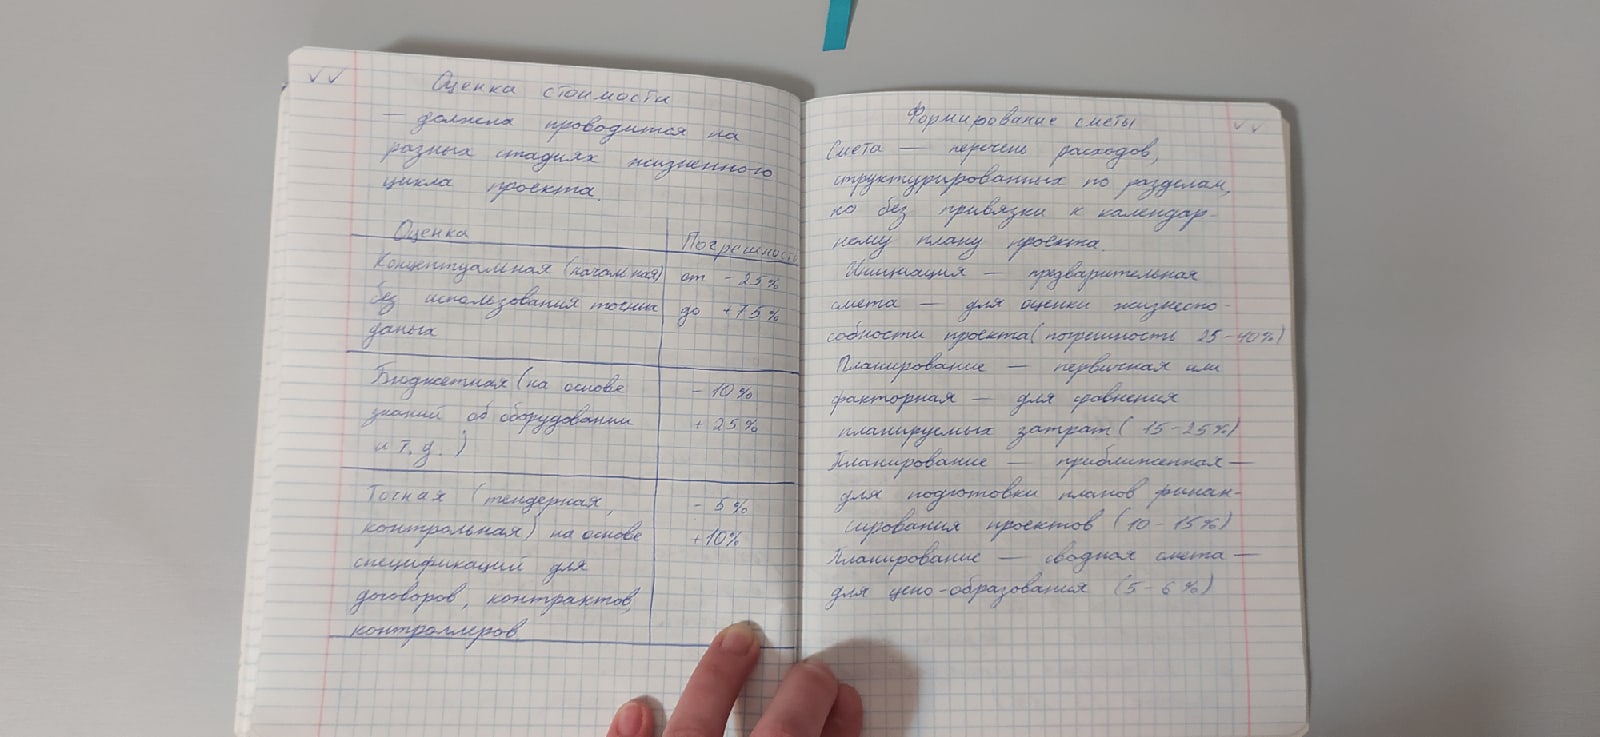 Оценка стоимости
— должна проводится на
разных стадиях жизненного
цикла проекта.
Оценка Погрешность
Концептуальная (начальная) от - 25%
без использования точных до +75%
даных
Бюджетная (на основе - 10%
знаний об оборудовании + 25%
и т.д.)
Точная (тендерная, - 5%
контрольная) на основе +10%
спецификаций для
договоров, контрактов,
контроллеров
Формирование сметы
Смета — перечень расходов,
структурированных по разделам,
но без привязки к календар-
ному плану проекта.
Инициация — предварительная
смета — для оценки жизнеспо-
собности проекта (погрешность 25-40%)
Планирование — первичная или
факторная — для сравнения
планируемых затрат (15-25%)
Планирование — приближенная —
для подготовки планов финан-
сирования проектов (10-15%)
Планирование — сводная смета —
для цено-образования (5-6%)